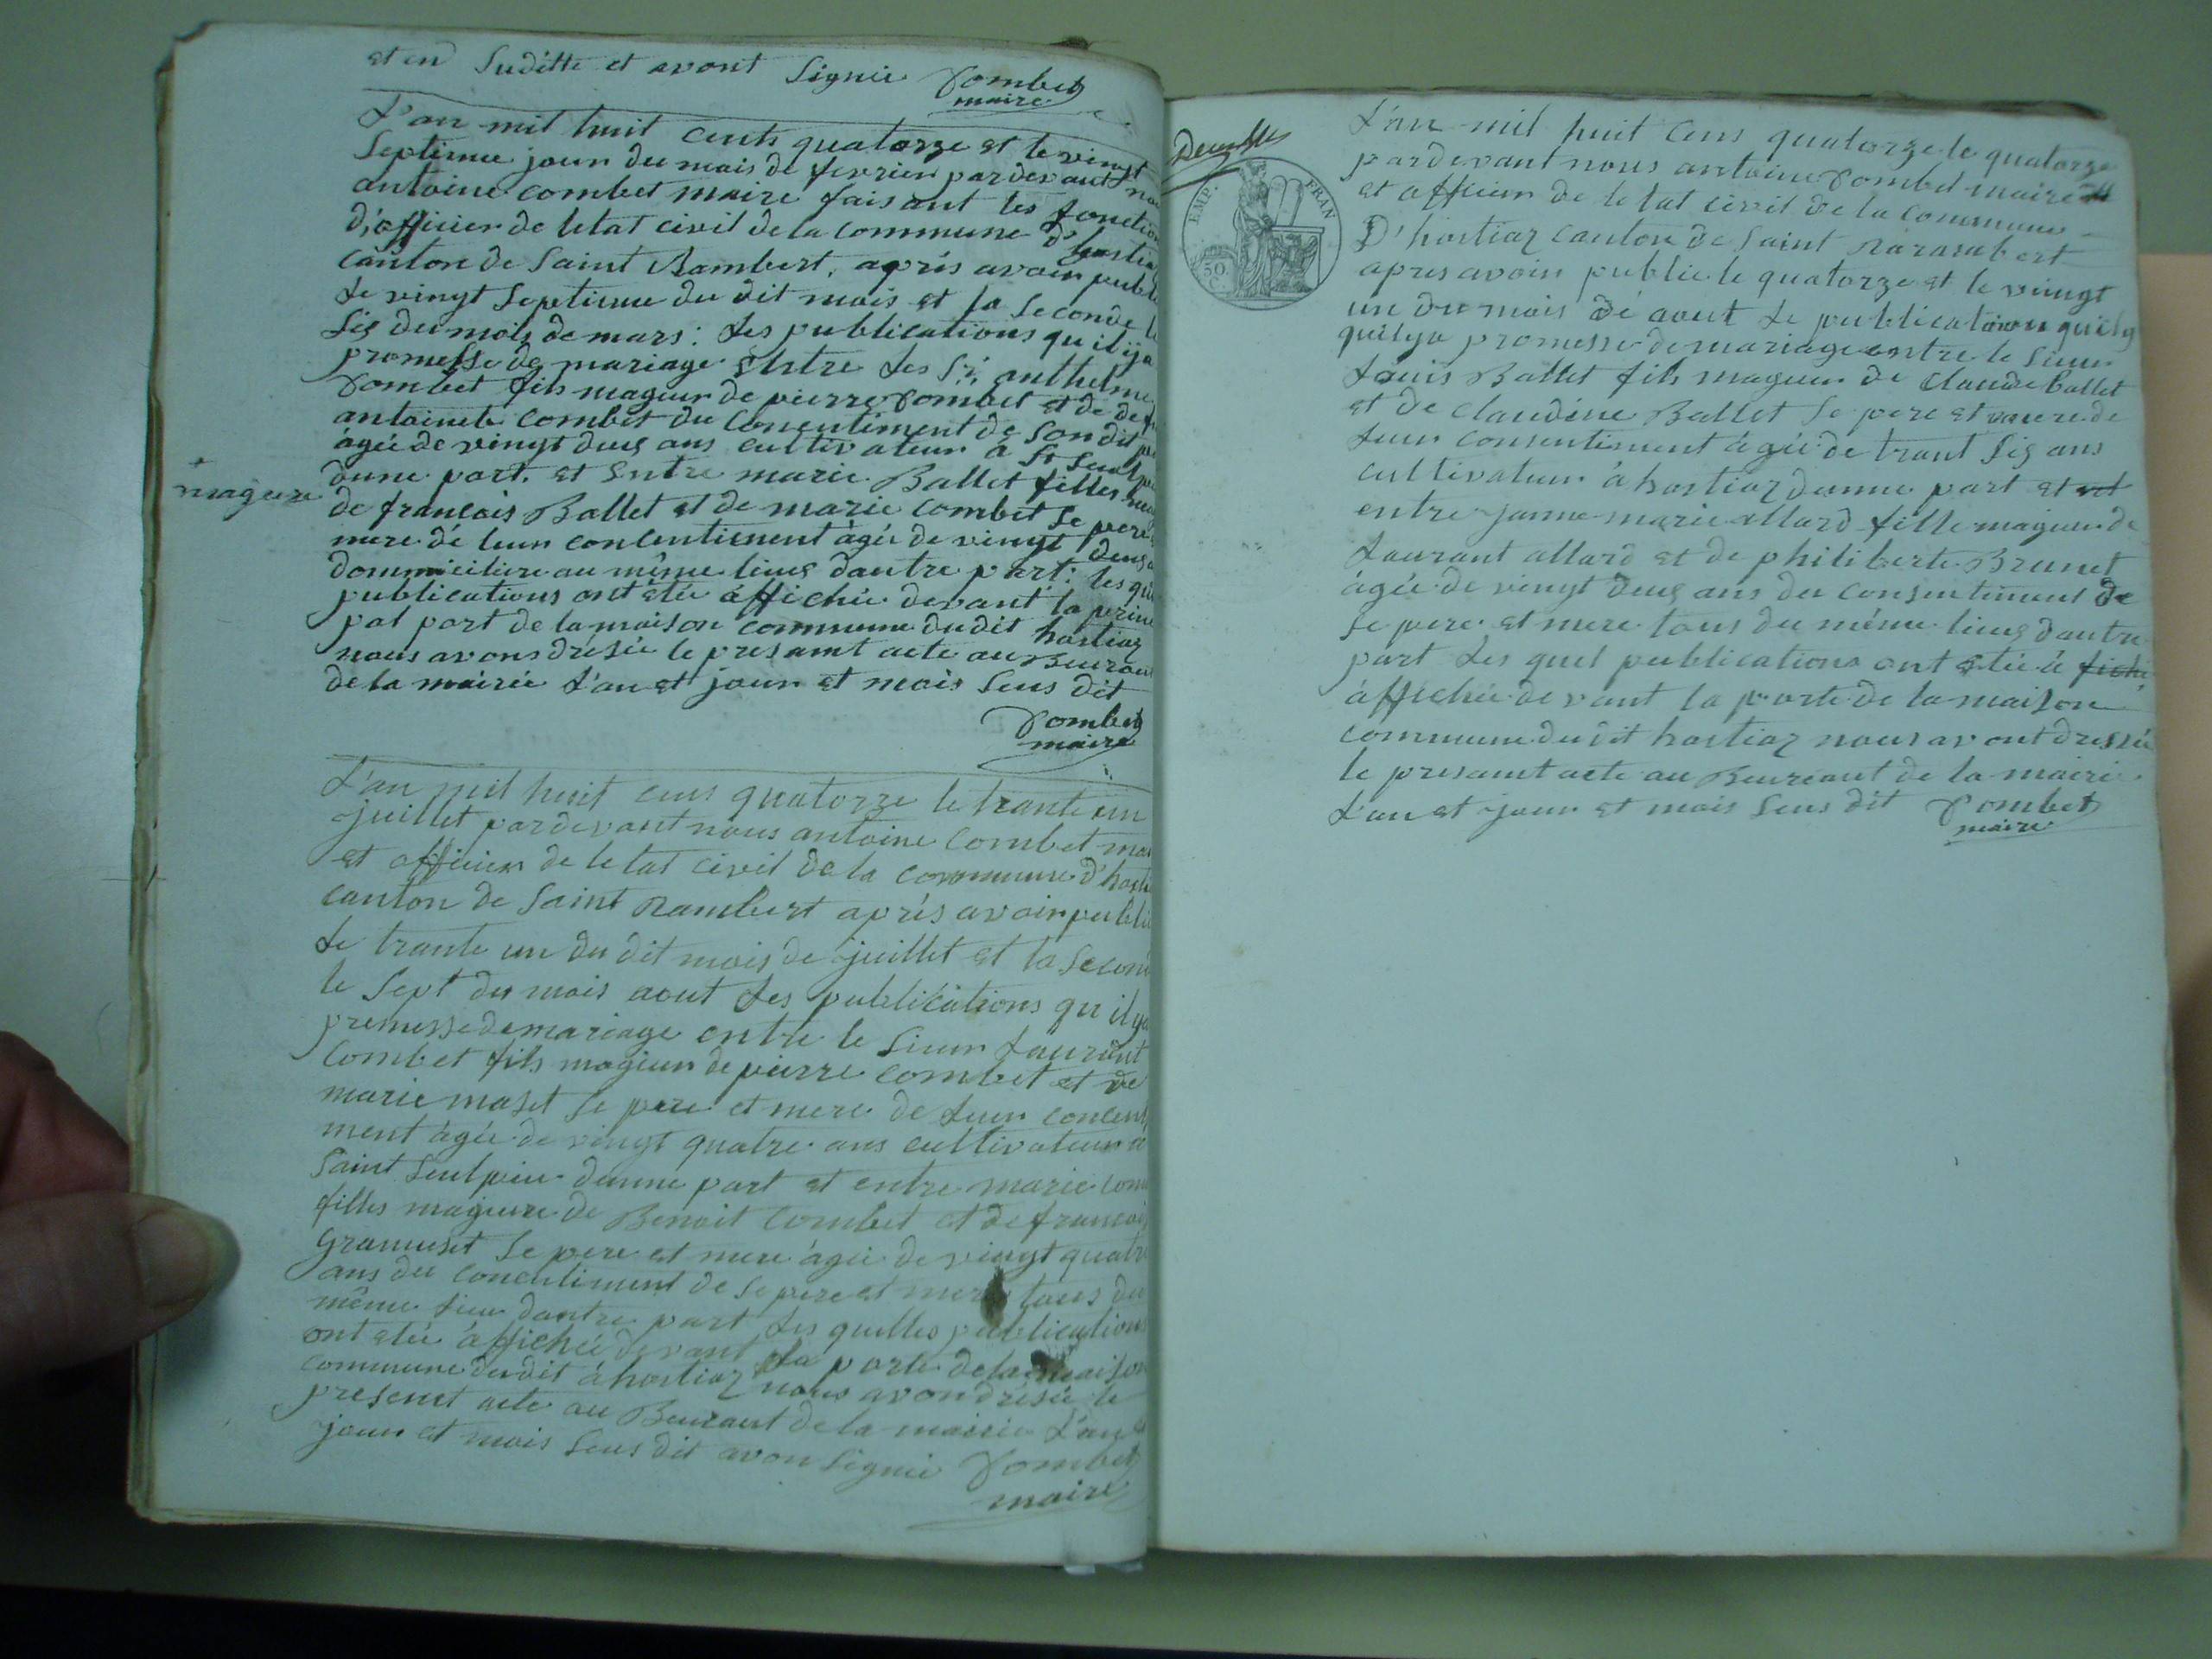 et en Suditte et avont Signié Combet
maire
L'an mil huit cents quatorze et le vingt
Septieme jour du mois de fevrier pardevant nou
antoine combet maire faisant les fonction
d'officier de letat civil de la commune d'hostia
canton de Saint Rambert, aprés avoir publ
Le vingt Septieme du dit mois et la Seconde le
Sis du mois de mars: Les publications qu'il ÿ a
promesse de mariage Entre Les Sr. anthelme
Combet fils mageur de pierre Combet et de
antoinete Combet du Consentiment de Son dit
àgée de vingt deus ans cultivateur à St Seulpi
dune part. et Entre marie Ballet filles
+
mageure
de francois Ballet et de marie Combet Le pere
mere dé leur concentiement àgée de vingt deus
dommiciliere au même lieus dautre part: les qu
publications ont étée affichée devant la prin
pal port de la maison commune du dit hostiaz
nous avons drésée le presamt acte au Beuraux
de la mairie L'an et jour et mois Sus dit
Combet
maire
L'an mil huit cens quatorze le trante un
juillet pardevant nous antoine Combet mai
et officier de le tat civil de la commune d'hosti
canton de Saint Rambert aprés avoir publié
Le trante un du dit mois de juillet et la Secon
le Sept du mois aout Les publications qu il ya
premesse de mariage entre le Sieur Laurant
Combet fils mageur de pierre Combet et de
marie maset Le pere et mere de Leur concent
ment àgée de vingt quatre ans cultivateur a
Saint Seulpice dunne part et entre marie Com
filles mageure de Benoit Combet et de francois
Gramuset Le pere et mere àgée de vingt quatre
ans du concentiment de Se pere et mere tous du
même Lieu dautre part Les quelles publications
ont étée àffichée devant La porte de la maison
commune du dit à hostiaz nous avon drésée le
presemt acte au Beuraut de la mairie L'an et
jour et mois Sus dit avon Signié Combet
maire
EMP. FRAN
50.
C.
L'an mil huit cens quatorze le quatorze
pardevant nous antoine Combet maire
et officier de le tat civil de la commune
D'hostiaz canton de Saint Rarambert
apres avoir publié le quatorze et le vingt
un du mois dé aout Le publication quil y
quil ya promesse de mariage entre le Sieur
Louis Ballet fils mageur de Claude Ballet
et de Claudine Ballet Le pere et mere de
Leur consentiement àgée de trant Sis ans
cultivateur à hostiaz dunne part et
entre janne marie allard fille mageur de
Laurant allard et de philiberte Brunet
àgée de vingt deus ans du consentiment de
Se pere et mere tous du même lieus dautre
part Les quel publications ont étée a fiché
àffichée devant la porte de la maison
commune du dit hostiaz nous avont dressée
le presamt acte au Beureaut de la mairie
L'an et jour et mois Sus dit Combet
maire